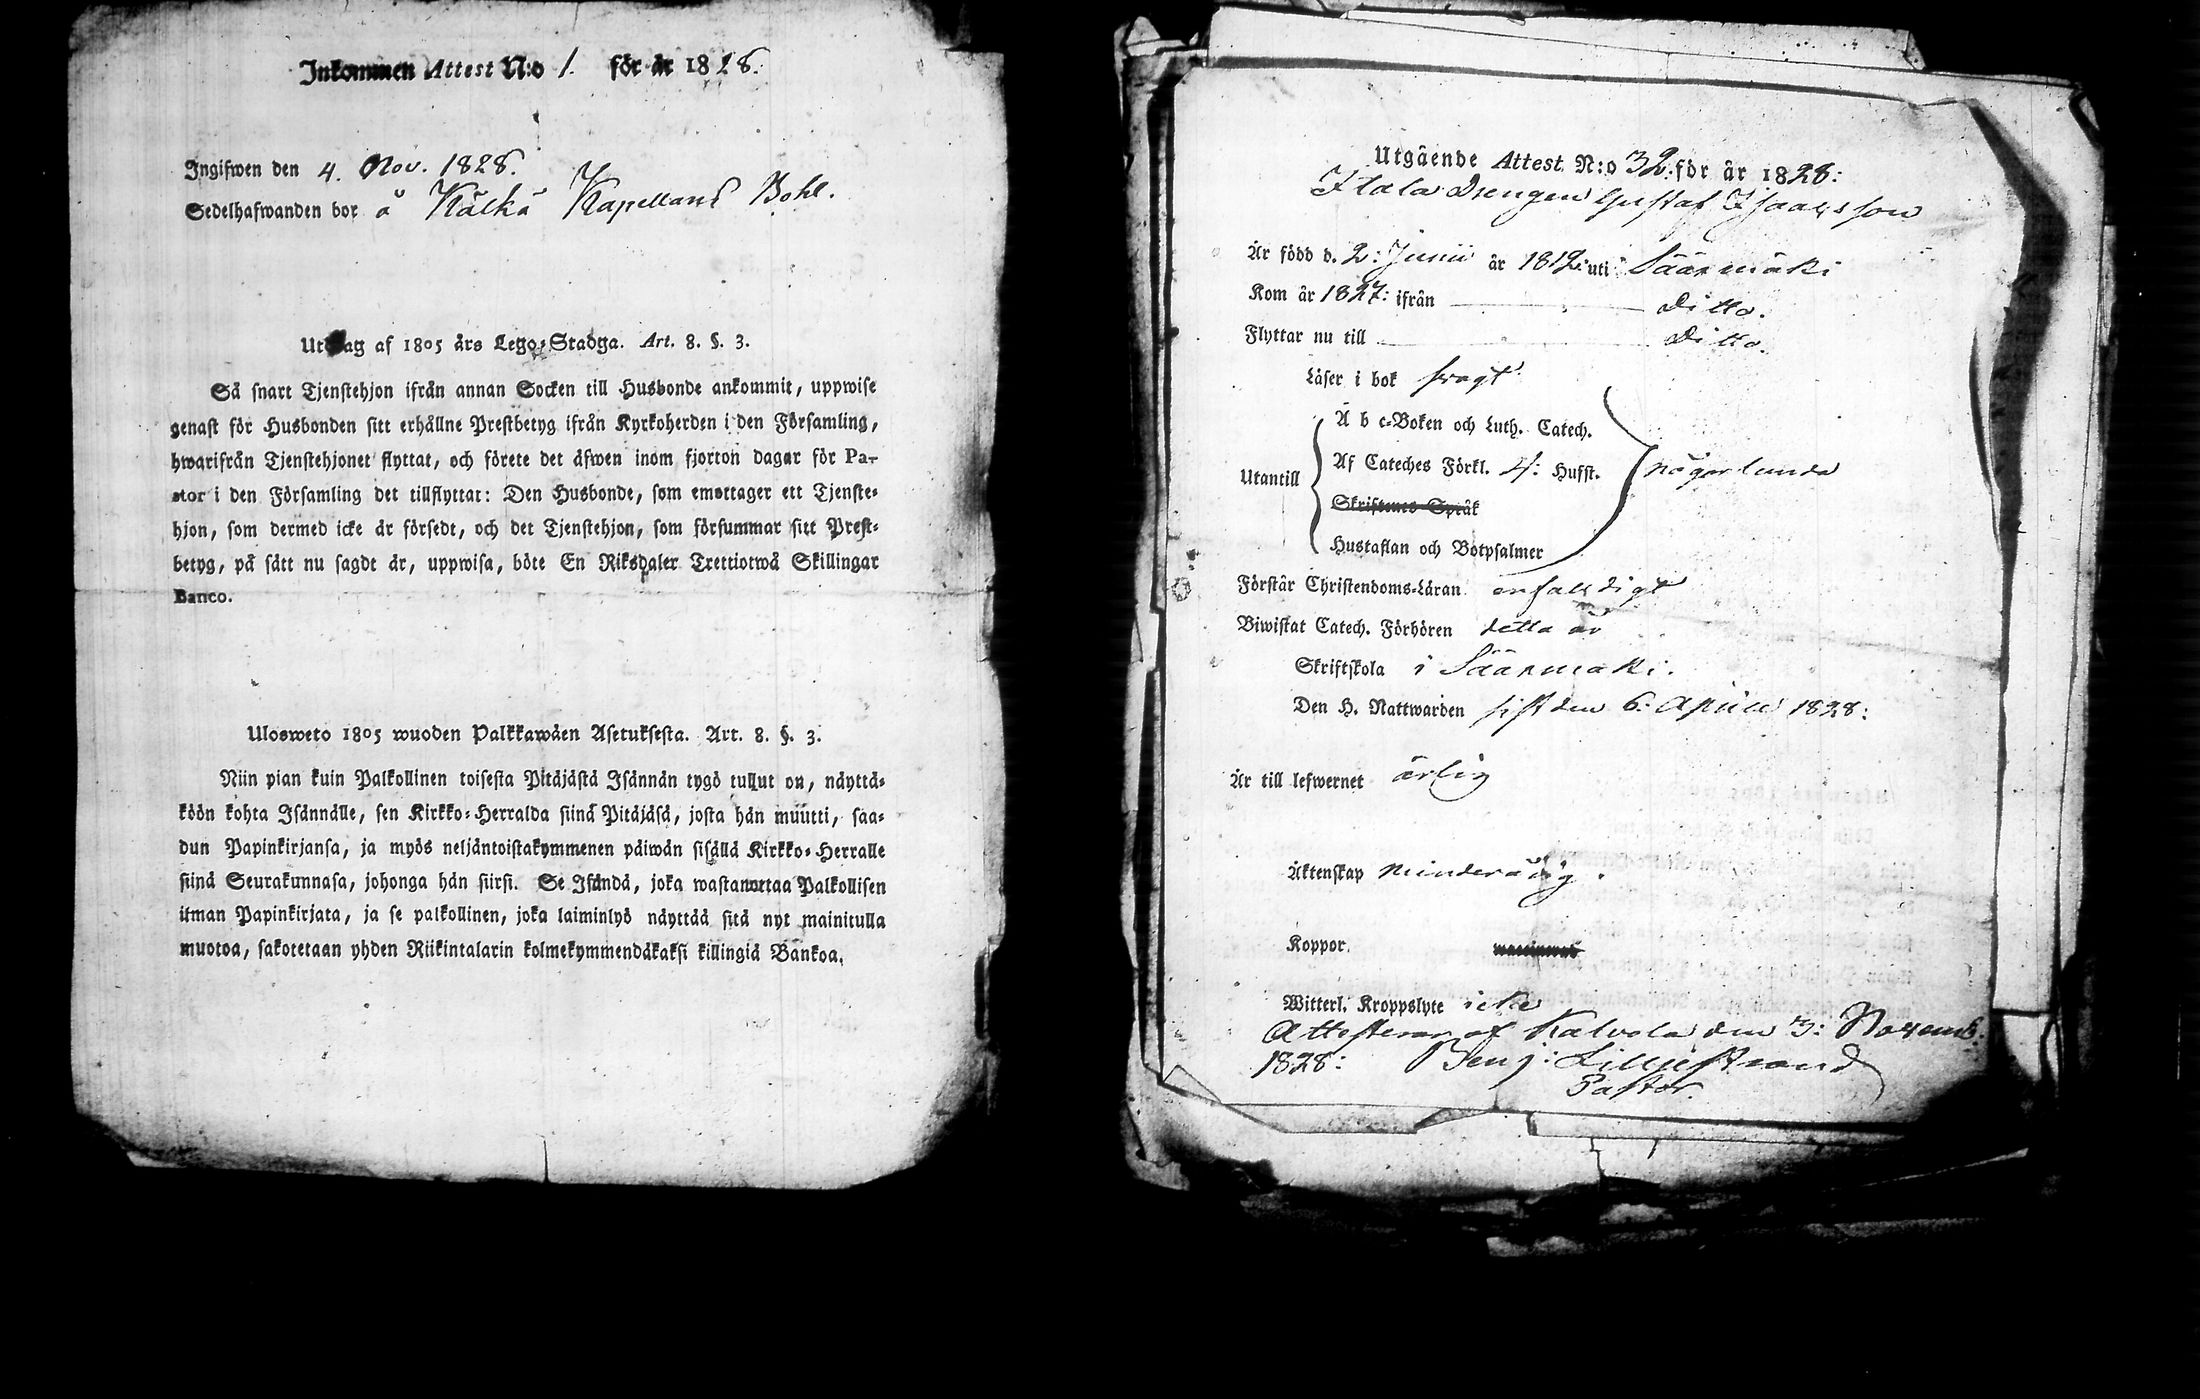 Inkommen Attest N:o 1. för år 1828.
Ingifwen den 4. Nov. 1828.
Sedelhafwanden bor å Kälkä Kapellans Bohl.
Utdrag af 1805 års Lego-Stadga. Art. 8. §. 3.
Så snart Tjenstehjon ifrån annan Socken till Husbonde ankommit, uppwise
genast för Husbonden sitt erhållne Prestbetyg ifrån Kyrkoherden i den Församling,
hwarifrån Tjenstehjonet flyttat, och förete det äfwen inom fjorton dagar för Pa-
stor i den Församling det tillflyttat: Den Husbonde, som emottager ett Tjenste-
hjon, som dermed icke är försedt, och det Tjenstehjon, som försummar sitt Prest-
betyg, på sätt nu sagdt är, uppwisa, böte En Riksdaler Trettiotwå Skillingar
Banco.
Ulosweto 1805 wuoden Palkkawäen Asetuksesta. Art. 8. §. 3.
Niin pian kuin Palkollinen toisesta Pitäjästä Isännän tygö tullut on, näyttä-
köön kohta Isännälle, sen Kirkko-Herralda siinä Pitäjäsä, josta hän muutti, saa-
dun Papinkirjansa, ja myös neljäntoistakymmenen päiwän sisällä Kirkko-Herralle
siinä Seurakunnasa, johonga hän siirsi. Se Isändä, joka wastanottaa Palkollisen
ilman Papinkirjata, ja se palkollinen, joka laiminlyö näyttää sitä nyt mainitulla
muotoa, sakotetaan yhden Riikintalarin kolmekymmendäkaksi killingiä Bankoa.
Utgående Attest N:o 32. för år 1828:
Itala Drengen Gustaf Isaacsson
Är född d. 2: Junii år 1812: uti Säärmäki
Kom år 1827: ifrån Ditto.
Flyttar nu till Ditto.
Läser i bok swagt
Utantill
A b c-Boken och Luth. Catech.
Af Cateches Förkl. 4: Hufst. någorlunda
Skriftenes Språk
Hustaflan och Botpsalmer
Förstår Christendoms-Läran enfaldigt
Biwistat Catech. Förhören detta år
Skriftskola i Säärmäki.
Den H. Nattwarden sist den 6: April 1828:
Är till lefwernet ärlig
Äktenskap minderårig.
Koppor.
Witterl. Kroppslyte icke
Attesterar af Kalvola den 3: Novemb:
1828: Benj: Lilljestrand
Pastor.